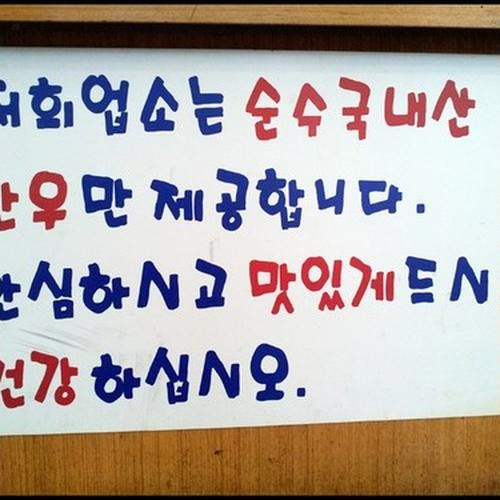 저희업소는 순수국내산
한우만 제공합니다.
안심하시고 맛있게드시
건강하십시오.